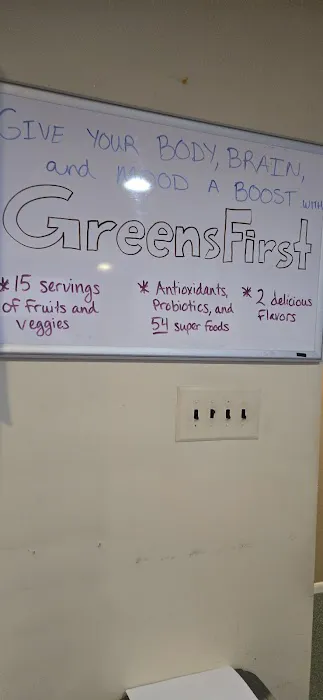 GIVE YOUR BODY, BRAIN,
and MOOD A BOOST WITH
GreensFirst
* 15 servings
of fruits and
veggies
* Antioxidants,
Probiotics, and
54 super foods
* 2 delicious
flavors